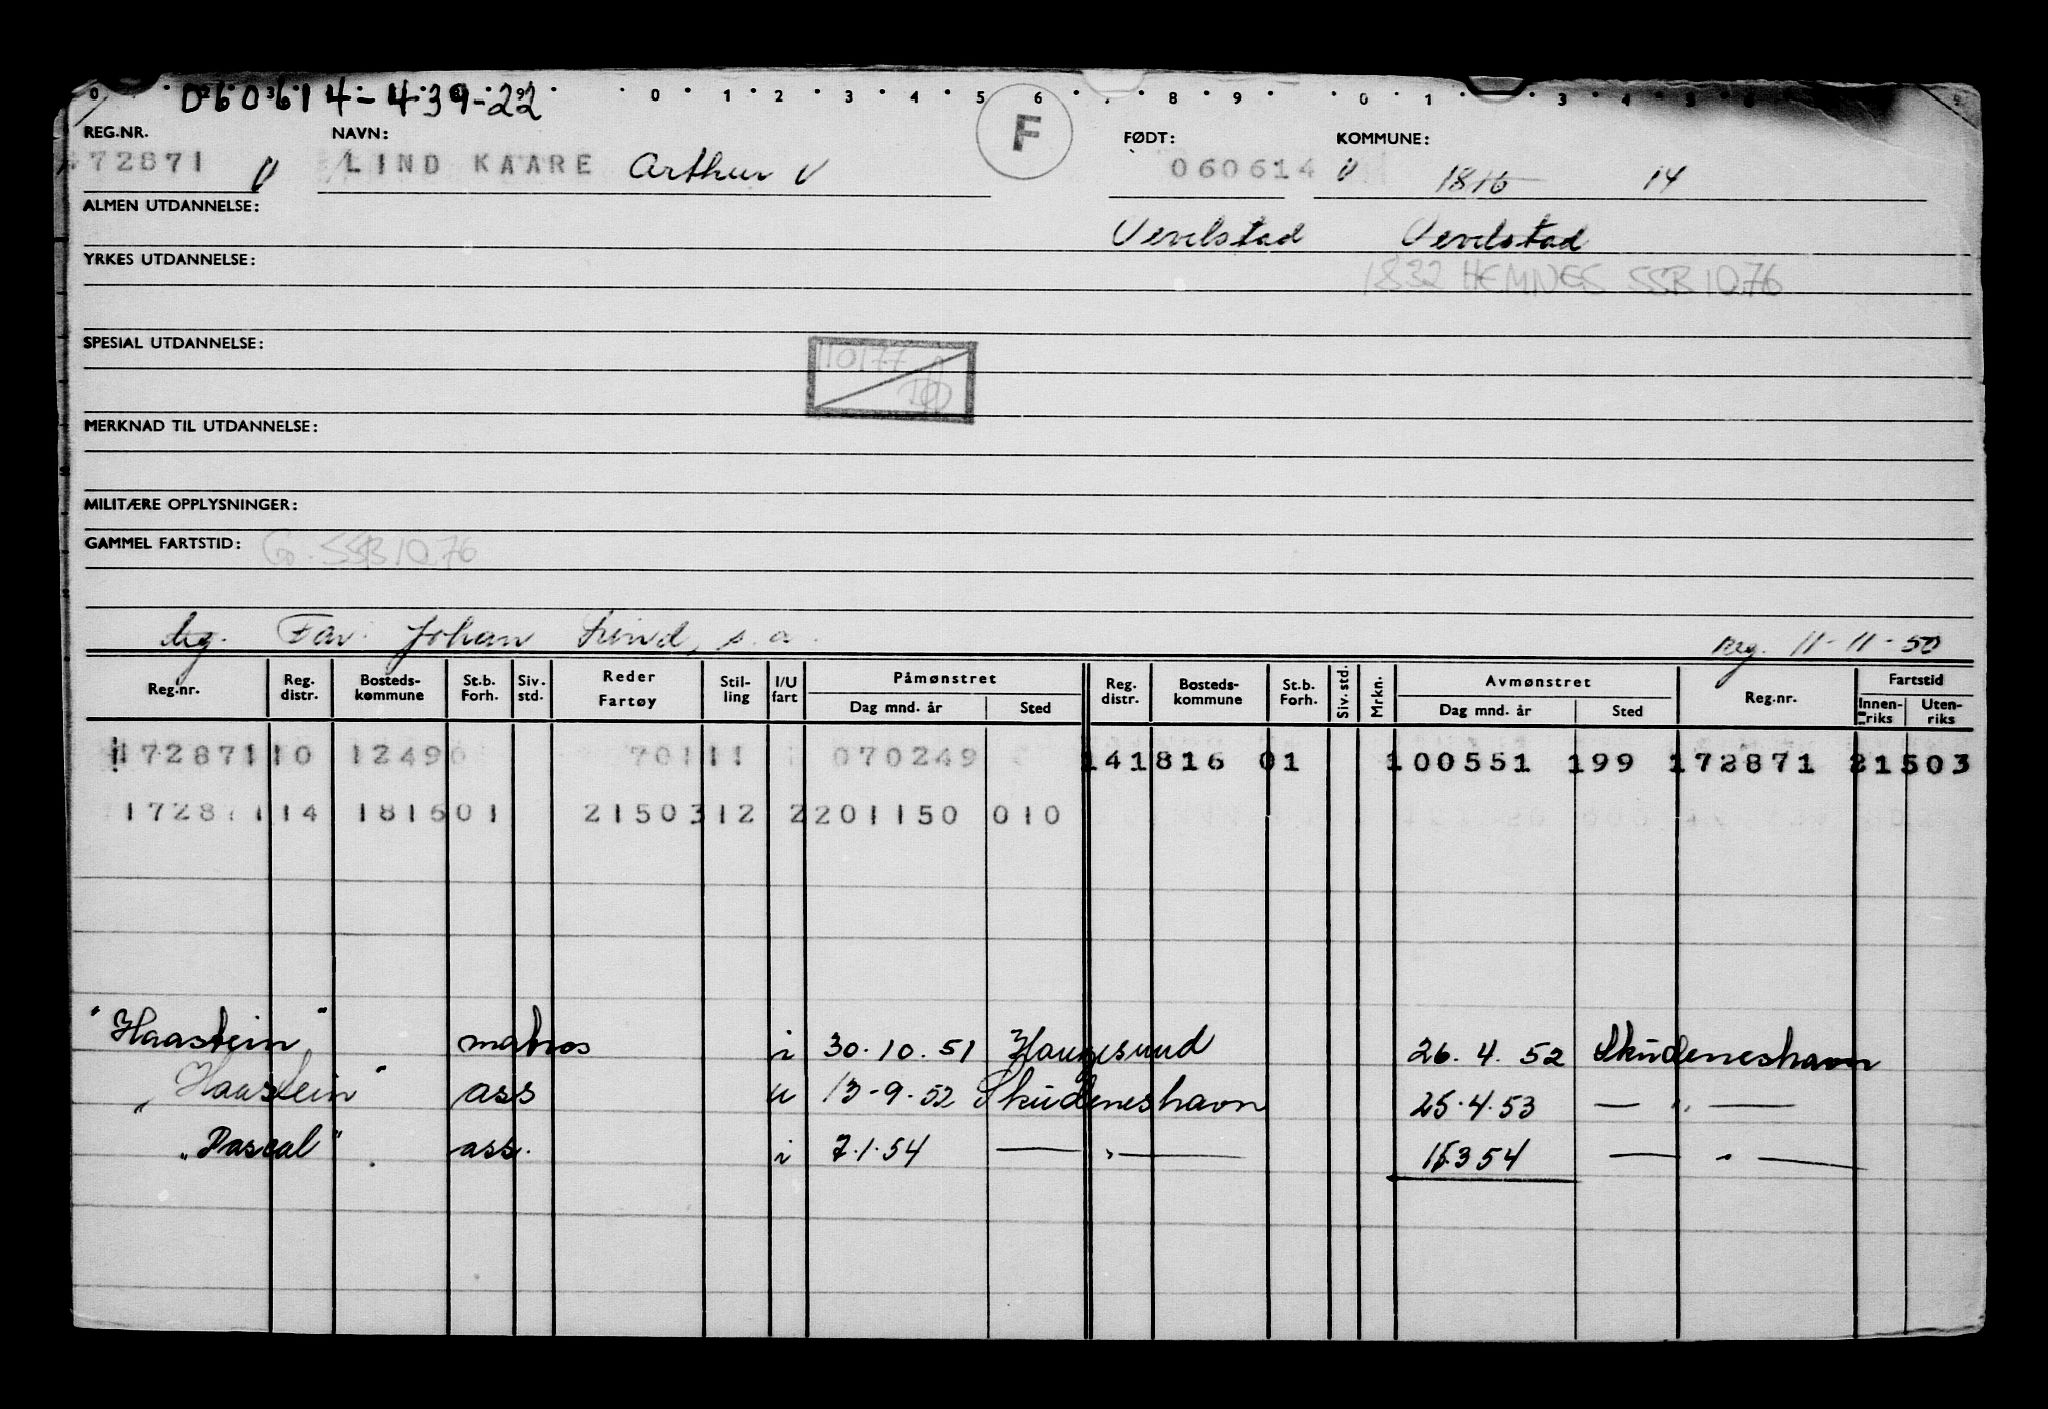 060614-439-22
0 1 2 3 4 5 6 8 9 0 1 3 4 5
REG.NR. NAVN: F FØDT: KOMMUNE:
72871 V LIND KAARE Arthur V 060614 V 1816 14
ALMEN UTDANNELSE: Vevelstad Vevelstad
YRKES UTDANNELSE: 1832 HEMNES SSB 10.76
SPESIAL UTDANNELSE: 110177
MERKNAD TIL UTDANNELSE:
MILITÆRE OPPLYSNINGER:
GAMMEL FARTSTID: SSB 10.76
Far: Johan Lind, s.a. reg. 11-11-50
Reg.nr. Reg. distr. Bosteds- kommune St.b. Forh. Siv. std. Reder Fartøy Stil- ling I/U fart Påmønstret Reg. distr. Bosteds- kommune St.b. Forh. Siv. std. Mrkn. Avmønstret Reg.nr. Fartstid
Dag mnd. år Sted Dag mnd. år Sted Innen- riks Uten- riks
172871 10 1249 701 11 070249 14 1816 01 100551 199 172871 21503
172871 14 1816 01 21503 12 2 201150 010
"Haastein" matros i 30.10.51 Haugesund 26.4.52 Skudeneshavn
"Haastein" ass u 13-9.52 Skudeneshavn 25.4.53 — " —
"Pascal" ass. i 7.1.54 — " — 15.3 54 — " —